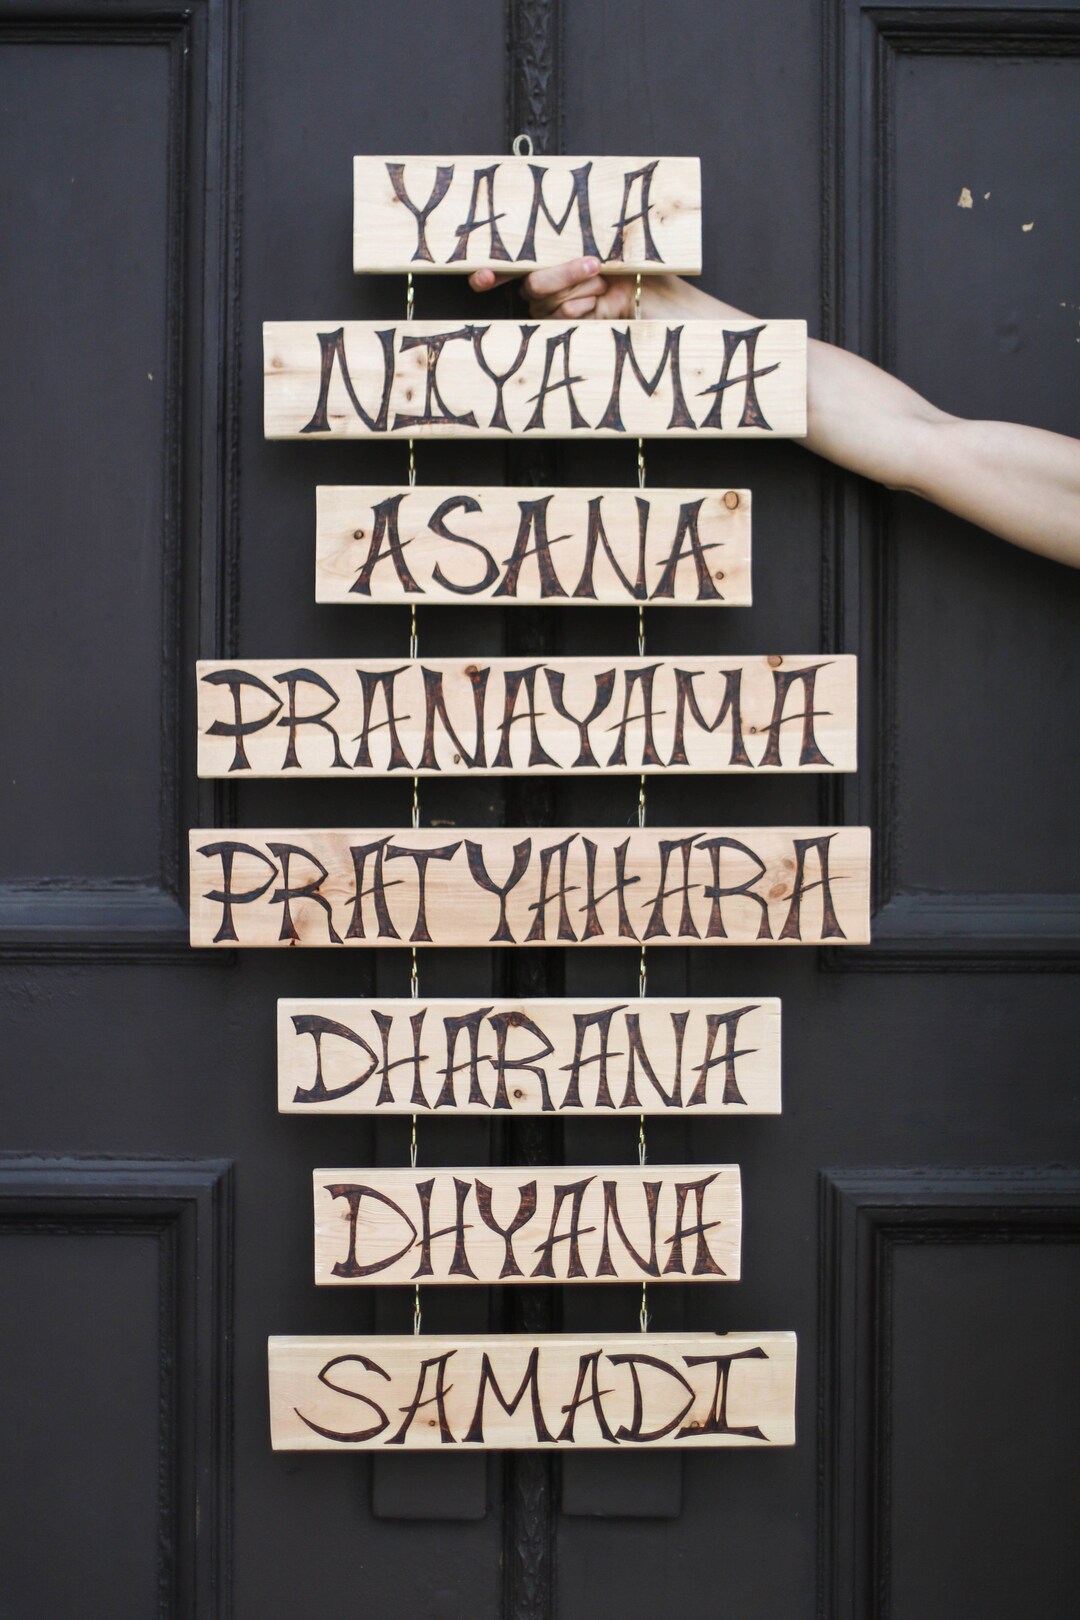 YAMA
NIYAMA
ASANA
PRANAYAMA
PRATYAHARA
DHARANA
DHYANA
SAMADI